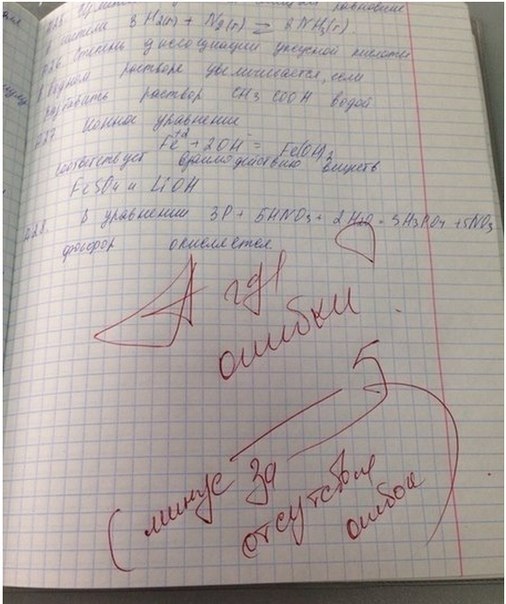 равновесие
в системе 3H2(г) + N2(г) ⇄ 2NH3(г).
A26 Степень диссоциации уксусной кислоты
в водном растворе увеличивается, если
разбавить раствор CH3COOH водой
A27 Ионное уравнение
Fe+2 + 2OH- = Fe(OH)2
соответствует взаимодействию веществ
FeSO4 и LiOH
A28. В уравнении 3P + 5HNO3 + 2H2O = 3H3PO4 + 5NO3
фосфор окисляется.
А где
ошибки ?
5-
(минус за
отсутствие
ошибок)